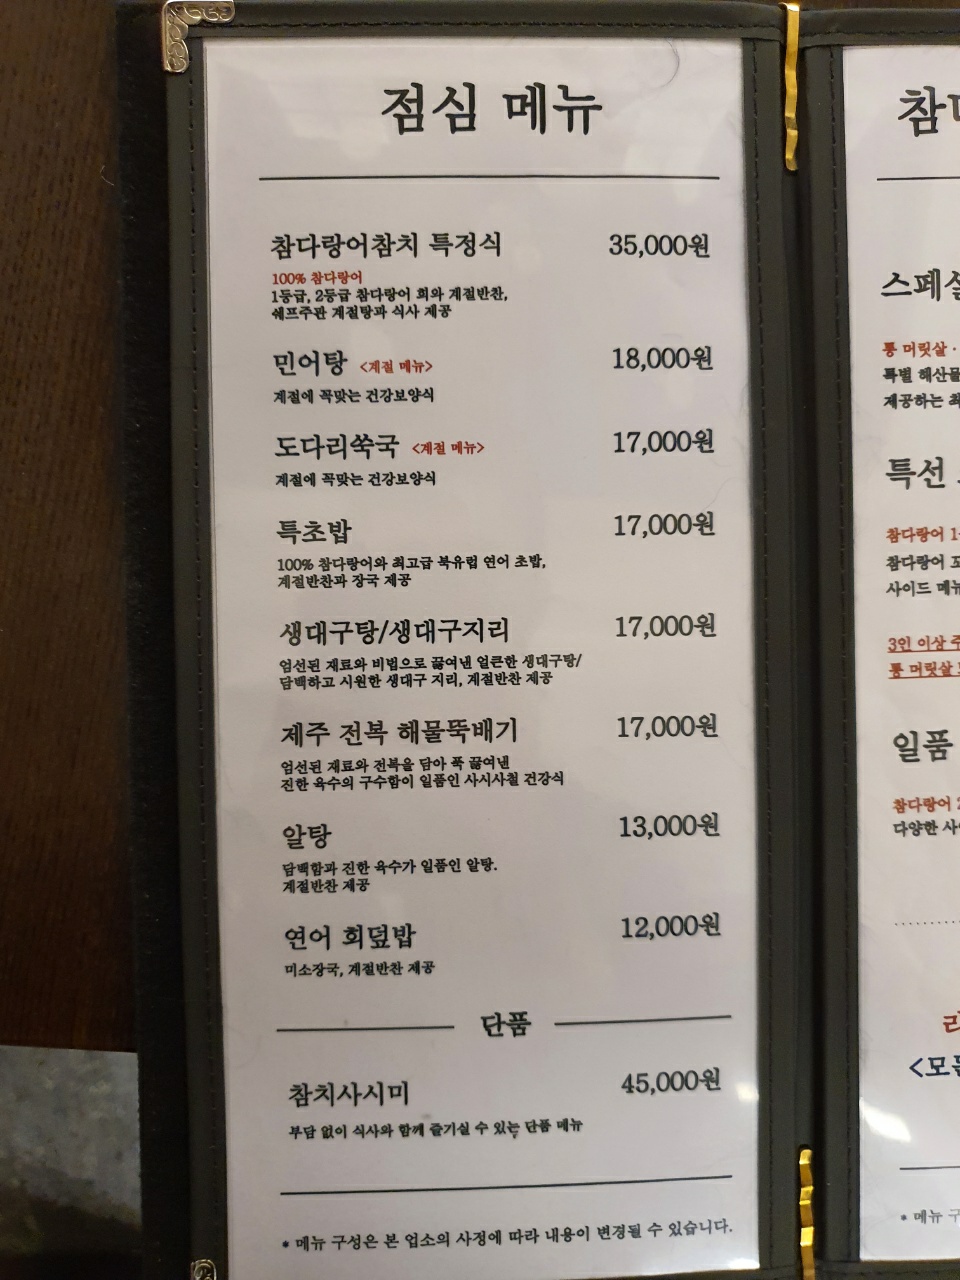 점심 메뉴
참다랑어참치 특정식 35,000원
100% 참다랑어
1등급, 2등급 참다랑어 회와 계절반찬,
쉐프주관 계절탕과 식사 제공
민어탕 <계절 메뉴> 18,000원
계절에 꼭맞는 건강보양식
도다리쑥국 <계절 메뉴> 17,000원
계절에 꼭맞는 건강보양식
특초밥 17,000원
100% 참다랑어와 최고급 북유럽 연어 초밥,
계절반찬과 장국 제공
생대구탕/생대구지리 17,000원
엄선된 재료와 비법으로 끓여낸 얼큰한 생대구탕/
담백하고 시원한 생대구 지리, 계절반찬 제공
제주 전복 해물뚝배기 17,000원
엄선된 재료와 전복을 담아 푹 끓여낸
진한 육수의 구수함이 일품인 사시사철 건강식
알탕 13,000원
담백함과 진한 육수가 일품인 알탕.
계절반찬 제공
연어 회덮밥 12,000원
미소장국, 계절반찬 제공
단품
참치사시미 45,000원
부담 없이 식사와 함께 즐기실 수 있는 단품 메뉴
* 메뉴 구성은 본 업소의 사정에 따라 내용이 변경될 수 있습니다.
통 머릿살 ·
특별 해산물
제공하는
특선
참다랑어
참다랑어
사이드 메뉴
3인 이상
통 머릿살
일품
참다랑어
다양한
* 메뉴